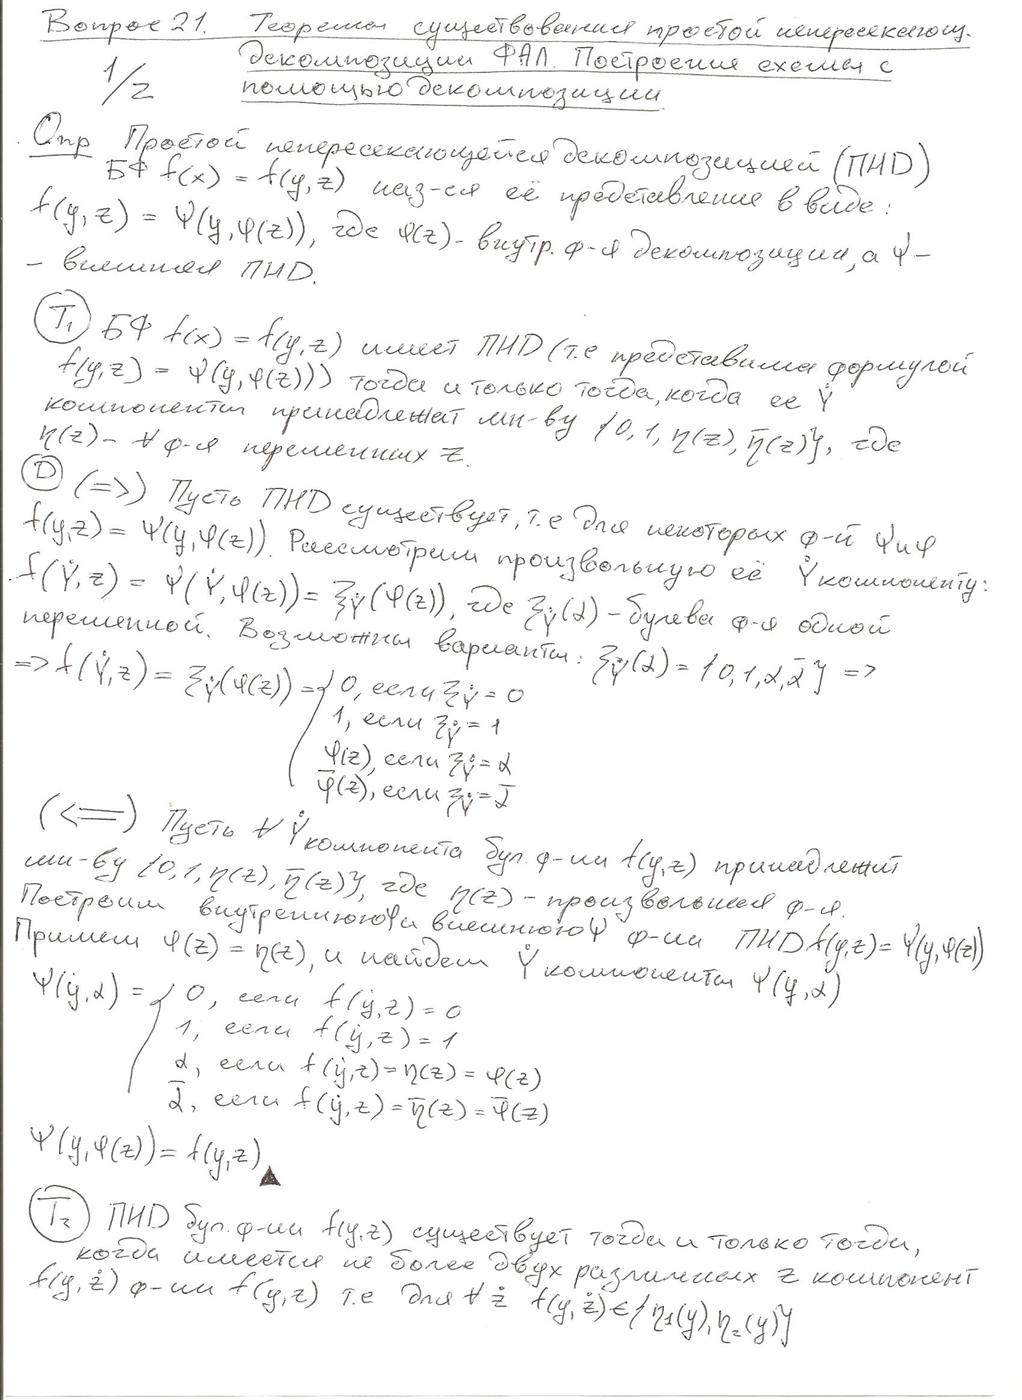 Вопрос 21. Теоремы существования простой непересекающ.
1/2 декомпозиции ФАЛ. Построение схемы с
помощью декомпозиции
Опр Простой непересекающейся декомпозицией (ПНД)
БФ f(x) = f(y,z) наз-ся её представление в виде:
f(y,z) = Ψ(y,φ(z)), где φ(z) - внутр. ф-я декомпозиции, а Ψ -
- внешняя ПНД.
T₁ БФ f(x) = f(y,z) имеет ПНД (т.е представима формулой
f(y,z) = Ψ(y,φ(z))) тогда и только тогда, когда ее Ẏ
компоненты принадлежат мн-ву {0,1,η(z),η̅(z)}, где
η(z) - ∀ ф-я переменных z.
D (=>) Пусть ПНД существует, т.е для некоторых ф-й Ψ и φ
f(y,z) = Ψ(y,φ(z)). Рассмотрим произвольную её Ẏ компоненту:
f(Ẏ,z) = Ψ(Ẏ,φ(z)) = ξẎ(φ(z)), где ξẎ(α) - булева ф-я одной
переменной. Возможны варианты: ξẎ(α) = {0,1,α,α̅} =>
=> f(Ẏ,z) = ξẎ(φ(z)) = { 0, если ξẎ = 0
1, если ξẎ = 1
φ(z), если ξẎ = α
φ̅(z), если ξẎ = α̅
(<=) Пусть ∀ Ẏ компонента бул. ф-ии f(y,z) принадлежит
мн-ву {0,1,η(z),η̅(z)}, где η(z) - произвольная ф-я.
Построим внутреннюю φ и внешнюю Ψ ф-ии ПНД f(y,z) = Ψ(y,φ(z))
Примем φ(z) = η(z), и найдем Ẏ компоненты Ψ(y,α)
Ψ(ẏ,α) = { 0, если f(ẏ,z) = 0
1, если f(ẏ,z) = 1
α, если f(ẏ,z) = η(z) = φ(z)
α̅, если f(ẏ,z) = η̅(z) = φ̅(z)
Ψ(y,φ(z)) = f(y,z) ▲
T₂ ПНД бул. ф-ии f(y,z) существует тогда и только тогда,
когда имеется не более двух различных z компонент
f(y,ż) ф-ии f(y,z) т.е для ∀ ż f(y,ż) ∈ {η₁(y),η₂(y)}